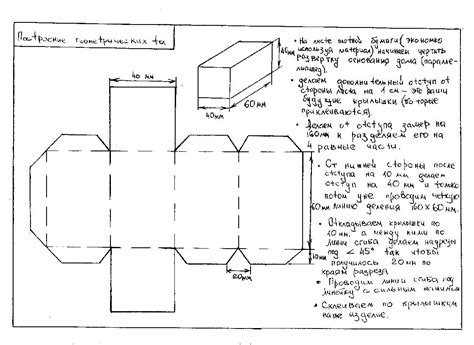 Построение геометрических тел
40 мм
45мм
60мм
40мм
• на листе плотной бумаги (экономно
используй материал) начинаем чертить
развертку основания дома (паралле-
лепипед).
• делаем дополнительный отступ от
стороны листа на 1 см – это ваши
будущие крылышки (которые
приклеиваются).
• делаем от отступа замер на
160мм и разделяем его на
4 равные части.
• От нижней стороны после
отступа на 10 мм делаем
отступ на 40 мм и только
потом уже проводим четкую
линию деления 160x60мм.
60мм
• Откладываем крылышки по
10 мм, а между ними по
линии сгиба делаем надрезы
под < 45° так чтобы
получилось 20 мм по
краям разреза
10мм
20мм
• Проводим линии сгиба под
линейку с сильным нажимом
• Склеиваем по крылышкам
наше изделие.